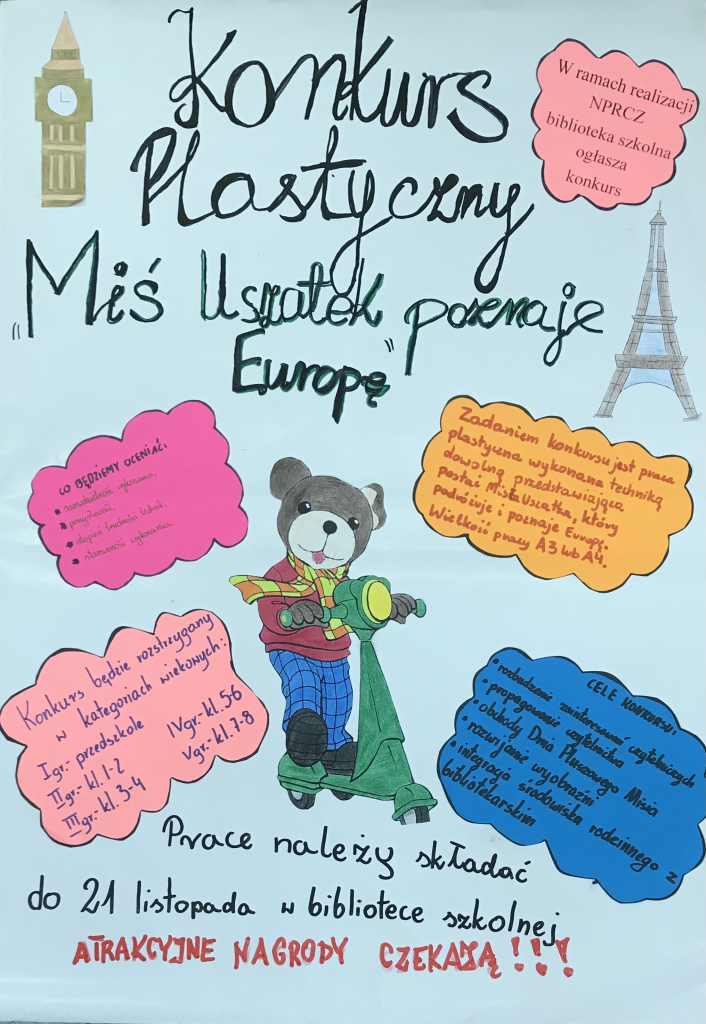 Konkurs
Plastyczny
„Miś Uszatek poznaje
Europę”
W ramach realizacji
NPRCZ
biblioteka szkolna
ogłasza
konkurs
CO BĘDZIEMY OCENIAĆ:
samodzielność wykonania,
pomysłowość,
stopień trudności technik,
staranność wykonania.
Zadaniem konkursu jest praca
plastyczna wykonana techniką
dowolną przedstawiająca
postać Misia Uszatka, który
podróżuje i poznaje Europę.
Wielkość pracy A3 lub A4.
Konkurs będzie rozstrzygany
w kategoriach wiekowych:
I gr.- przedszkole
II gr.- kl. 1-2
III gr.- kl. 3-4
IV gr.- kl. 56
V gr.- kl. 7-8
CELE KONKURSU:
• rozbudzanie zainteresowań czytelniczych
• propagowanie czytelnictwa
• obchody Dnia Pluszowego Misia
• rozwijanie wyobraźni
• integracja środowiska rodzinnego z
bibliotekarskim
Prace należy składać
do 21 listopada w bibliotece szkolnej
ATRAKCYJNE NAGRODY CZEKAJĄ!!!